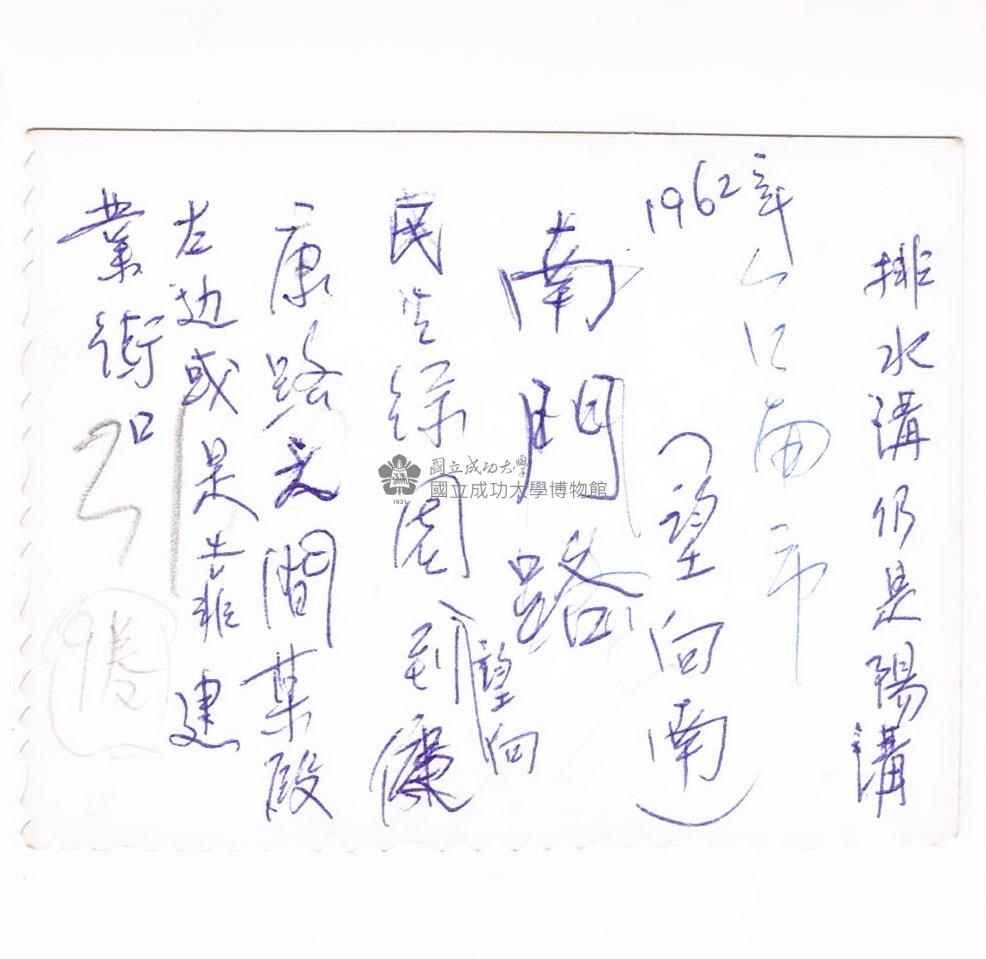 排水溝仍是陽溝
1962年台南市
(望向南)
南門路
望向
民生綠園到健
康路之間某段
左边或是靠建
業街口
國立成功大學
國立成功大學博物館
1931